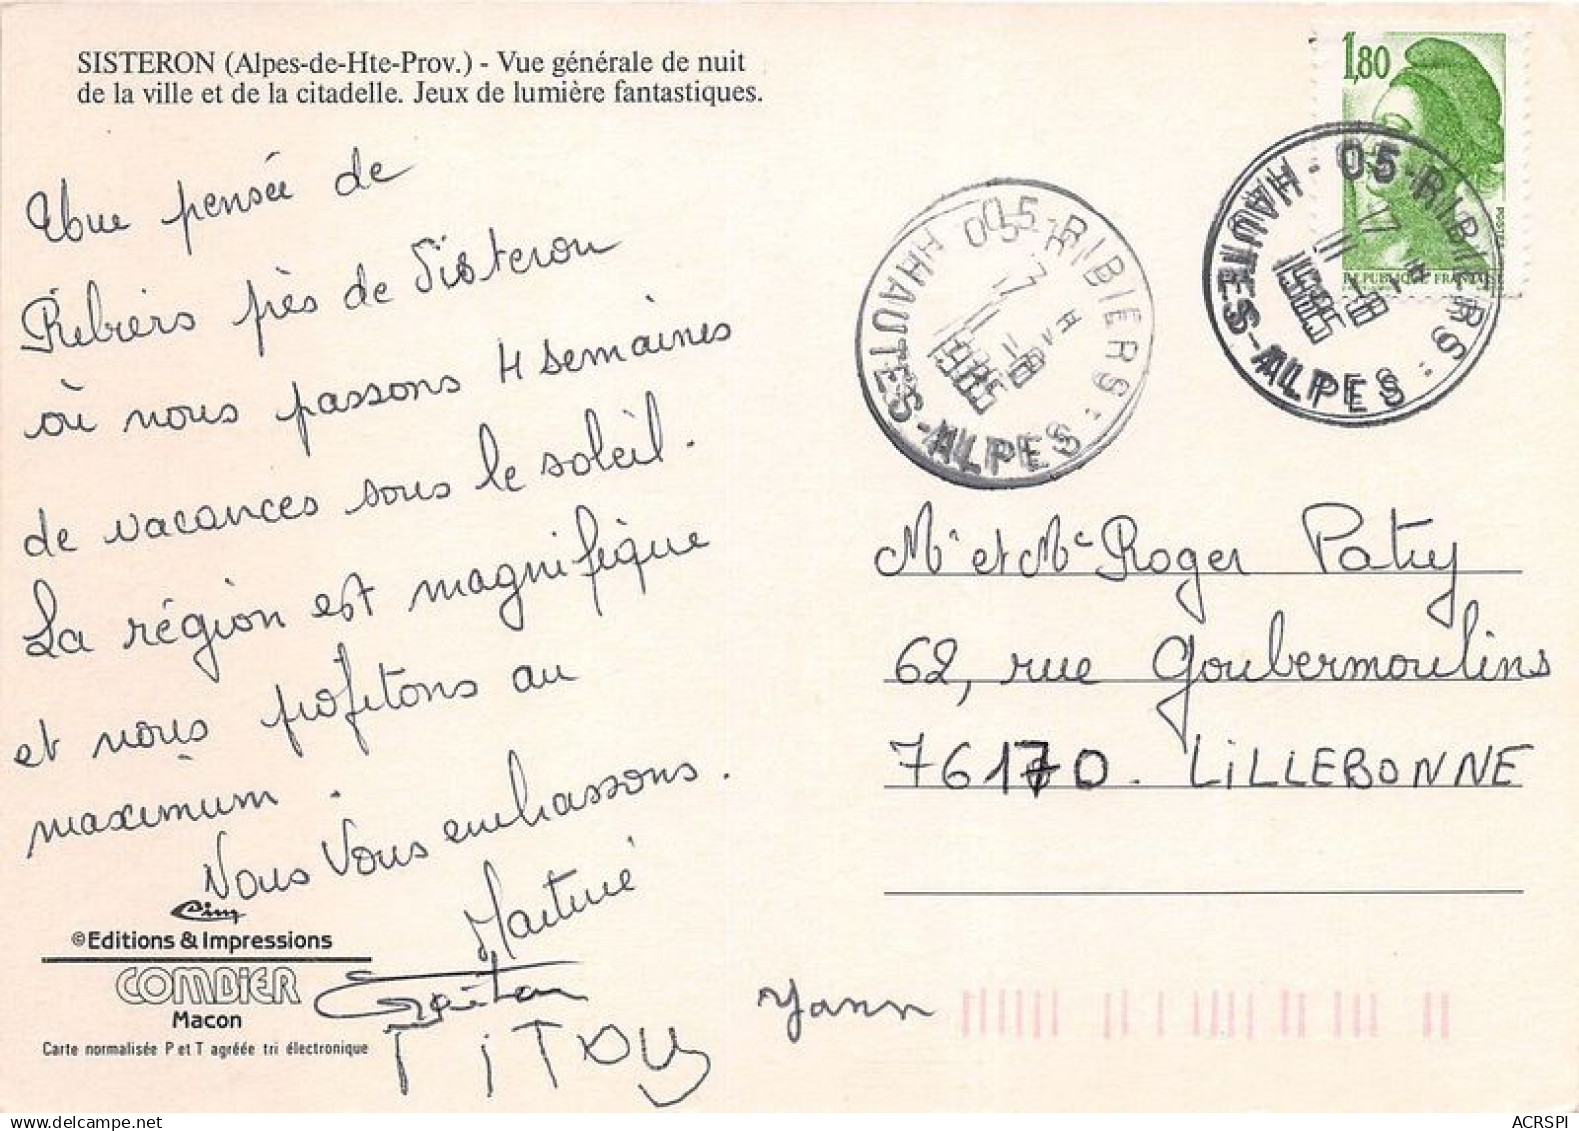 SISTERON (Alpes-de-Hte-Prov.) - Vue générale de nuit
de la ville et de la citadelle. Jeux de lumière fantastiques.
Une pensée de
Ribiers près de Sisteron
où nous passons 4 semaines
de vacances sous le soleil.
La région est magnifique
et nous profitons au
maximum.
Nous vous embrassons.
Martine
Gaëtan
TiTOU
Yann
Cim
©Editions & Impressions
COMBIER
Macon
Carte normalisée P et T agréée tri électronique
1,80
POSTES
REPUBLIQUE FRANCAISE
05-RIBIERS
17
1985
HAUTES-ALPES
05-RIBIERS
17
1985
HAUTES-ALPES
Mr et Me Roger Patry
62, rue Goubermoulins
76170. LiLLEBONNE
ACRSPI